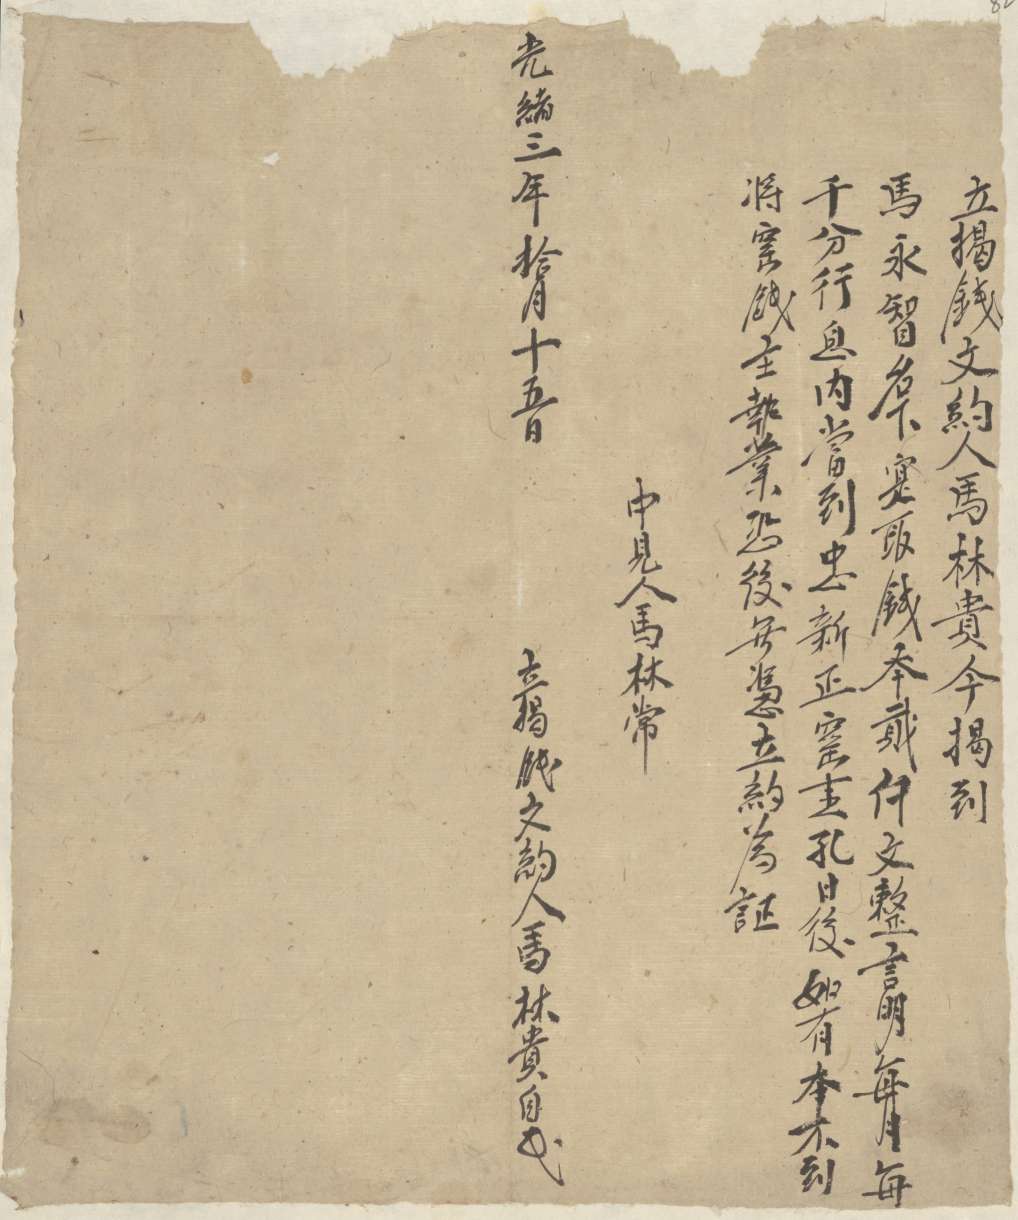 立揭錢文約人馬林貴今揭到
馬永智名下寔取錢本貳仟文整言明每月每
千分行息內當到忠新正窑壹孔日後如有本不到
将窑錢主執業恐後無憑立約為証
中見人馬林常
光緒三年拾月十五日
立揭錢文約人馬林貴自
82